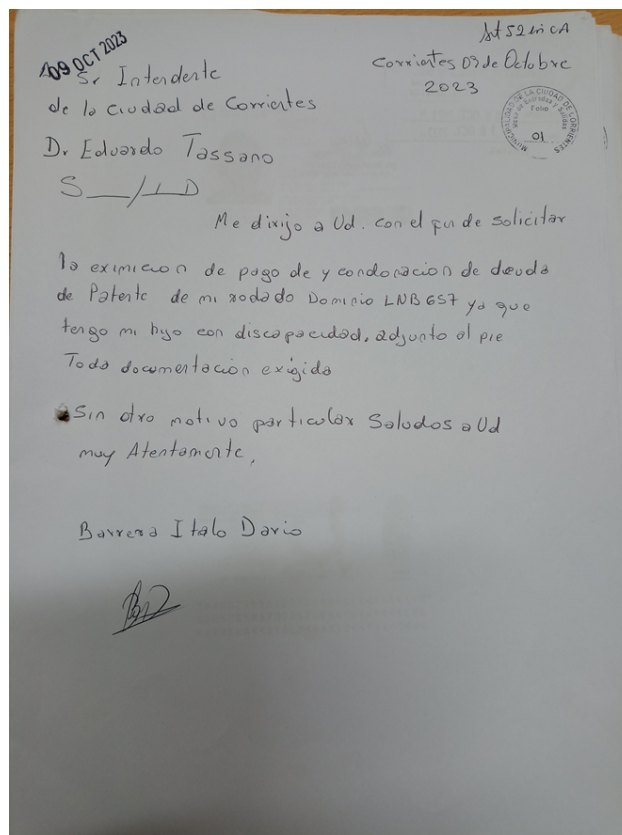 09 OCT 2023
Art 52 in CA
Corrientes 09 de Octubre
2023
Sr Intendente
de la Ciudad de Corrientes
Dr Eduardo Tassano
S__/__D
MUNICIPALIDAD DE LA CIUDAD DE CORRIENTES
Mesa de Entradas y Salidas
Folio
01
Me dirijo a Ud. con el fin de solicitar
la eximicion de pago de y condonacion de deuda
de Patente de mi rodado Dominio LNB 657 ya que
tengo mi hijo con discapacidad, adjunto al pie
Toda documentación exigida
Sin otro motivo particular Saludos a Ud
muy Atentamente,
Barrera Italo Dario